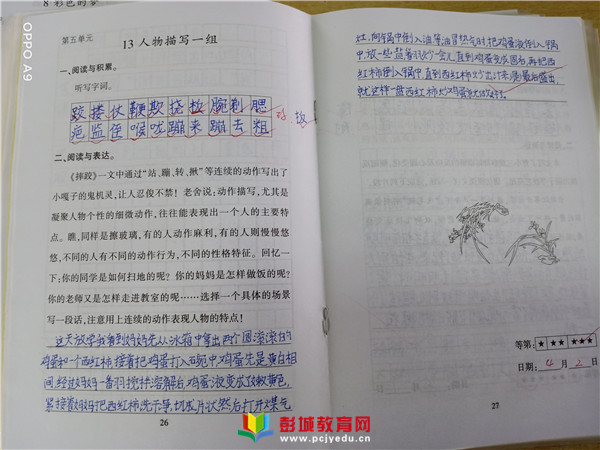 8 彩色的梦
第五单元
13 人物描写一组
一、阅读与积累。
听写字词。
跤 搂 仗 鞭 欺 挠 扳 腕 刹 腮
疤 监 侄 喉 咙 蹦 来 蹦 去 粗
扳
二、阅读与表达。
《摔跤》一文中通过“站、蹦、转、揪”等连续的动作写出了
小嘎子的鬼机灵,让人忍俊不禁!老舍说:动作描写,尤其是
凝聚人物个性的细微动作,往往能表现出一个人的主要特
点。瞧,同样是擦玻璃,有的人动作麻利,有的人则慢慢悠
悠,不同的人有不同的动作行为,不同的性格特征。回忆一
下:你的同学是如何扫地的呢?你的妈妈是怎样做饭的呢?
你的老师又是怎样走进教室的呢……选择一个具体的场景
写一段话,注意用上连续的动作表现人物的特点!
这天放学我看到妈妈先从冰箱中拿出两个圆滚滚的
鸡蛋和一个西红柿,接着把鸡蛋打入碗中鸡蛋先是黄白相
间,经过妈妈一番搅拌溶解后,鸡蛋液变成了嫩黄色,
紧接着妈妈把西红柿洗干净,切成片状然后打开煤气
26
灶,向锅中倒入油等油冒热气时,把鸡蛋液倒入锅
中,放一些盐着炒会儿,直到鸡蛋变成固态,再把西
红柿倒入锅中,直到西红柿炒出汁来,最后盛出,
就这样一盘西红柿炒鸡蛋就做好了。
等第: ★ ★★ ★★★
日期: 4 月 2 日
27
OPPO A9
彭城教育网
www.pcjyedu.cn